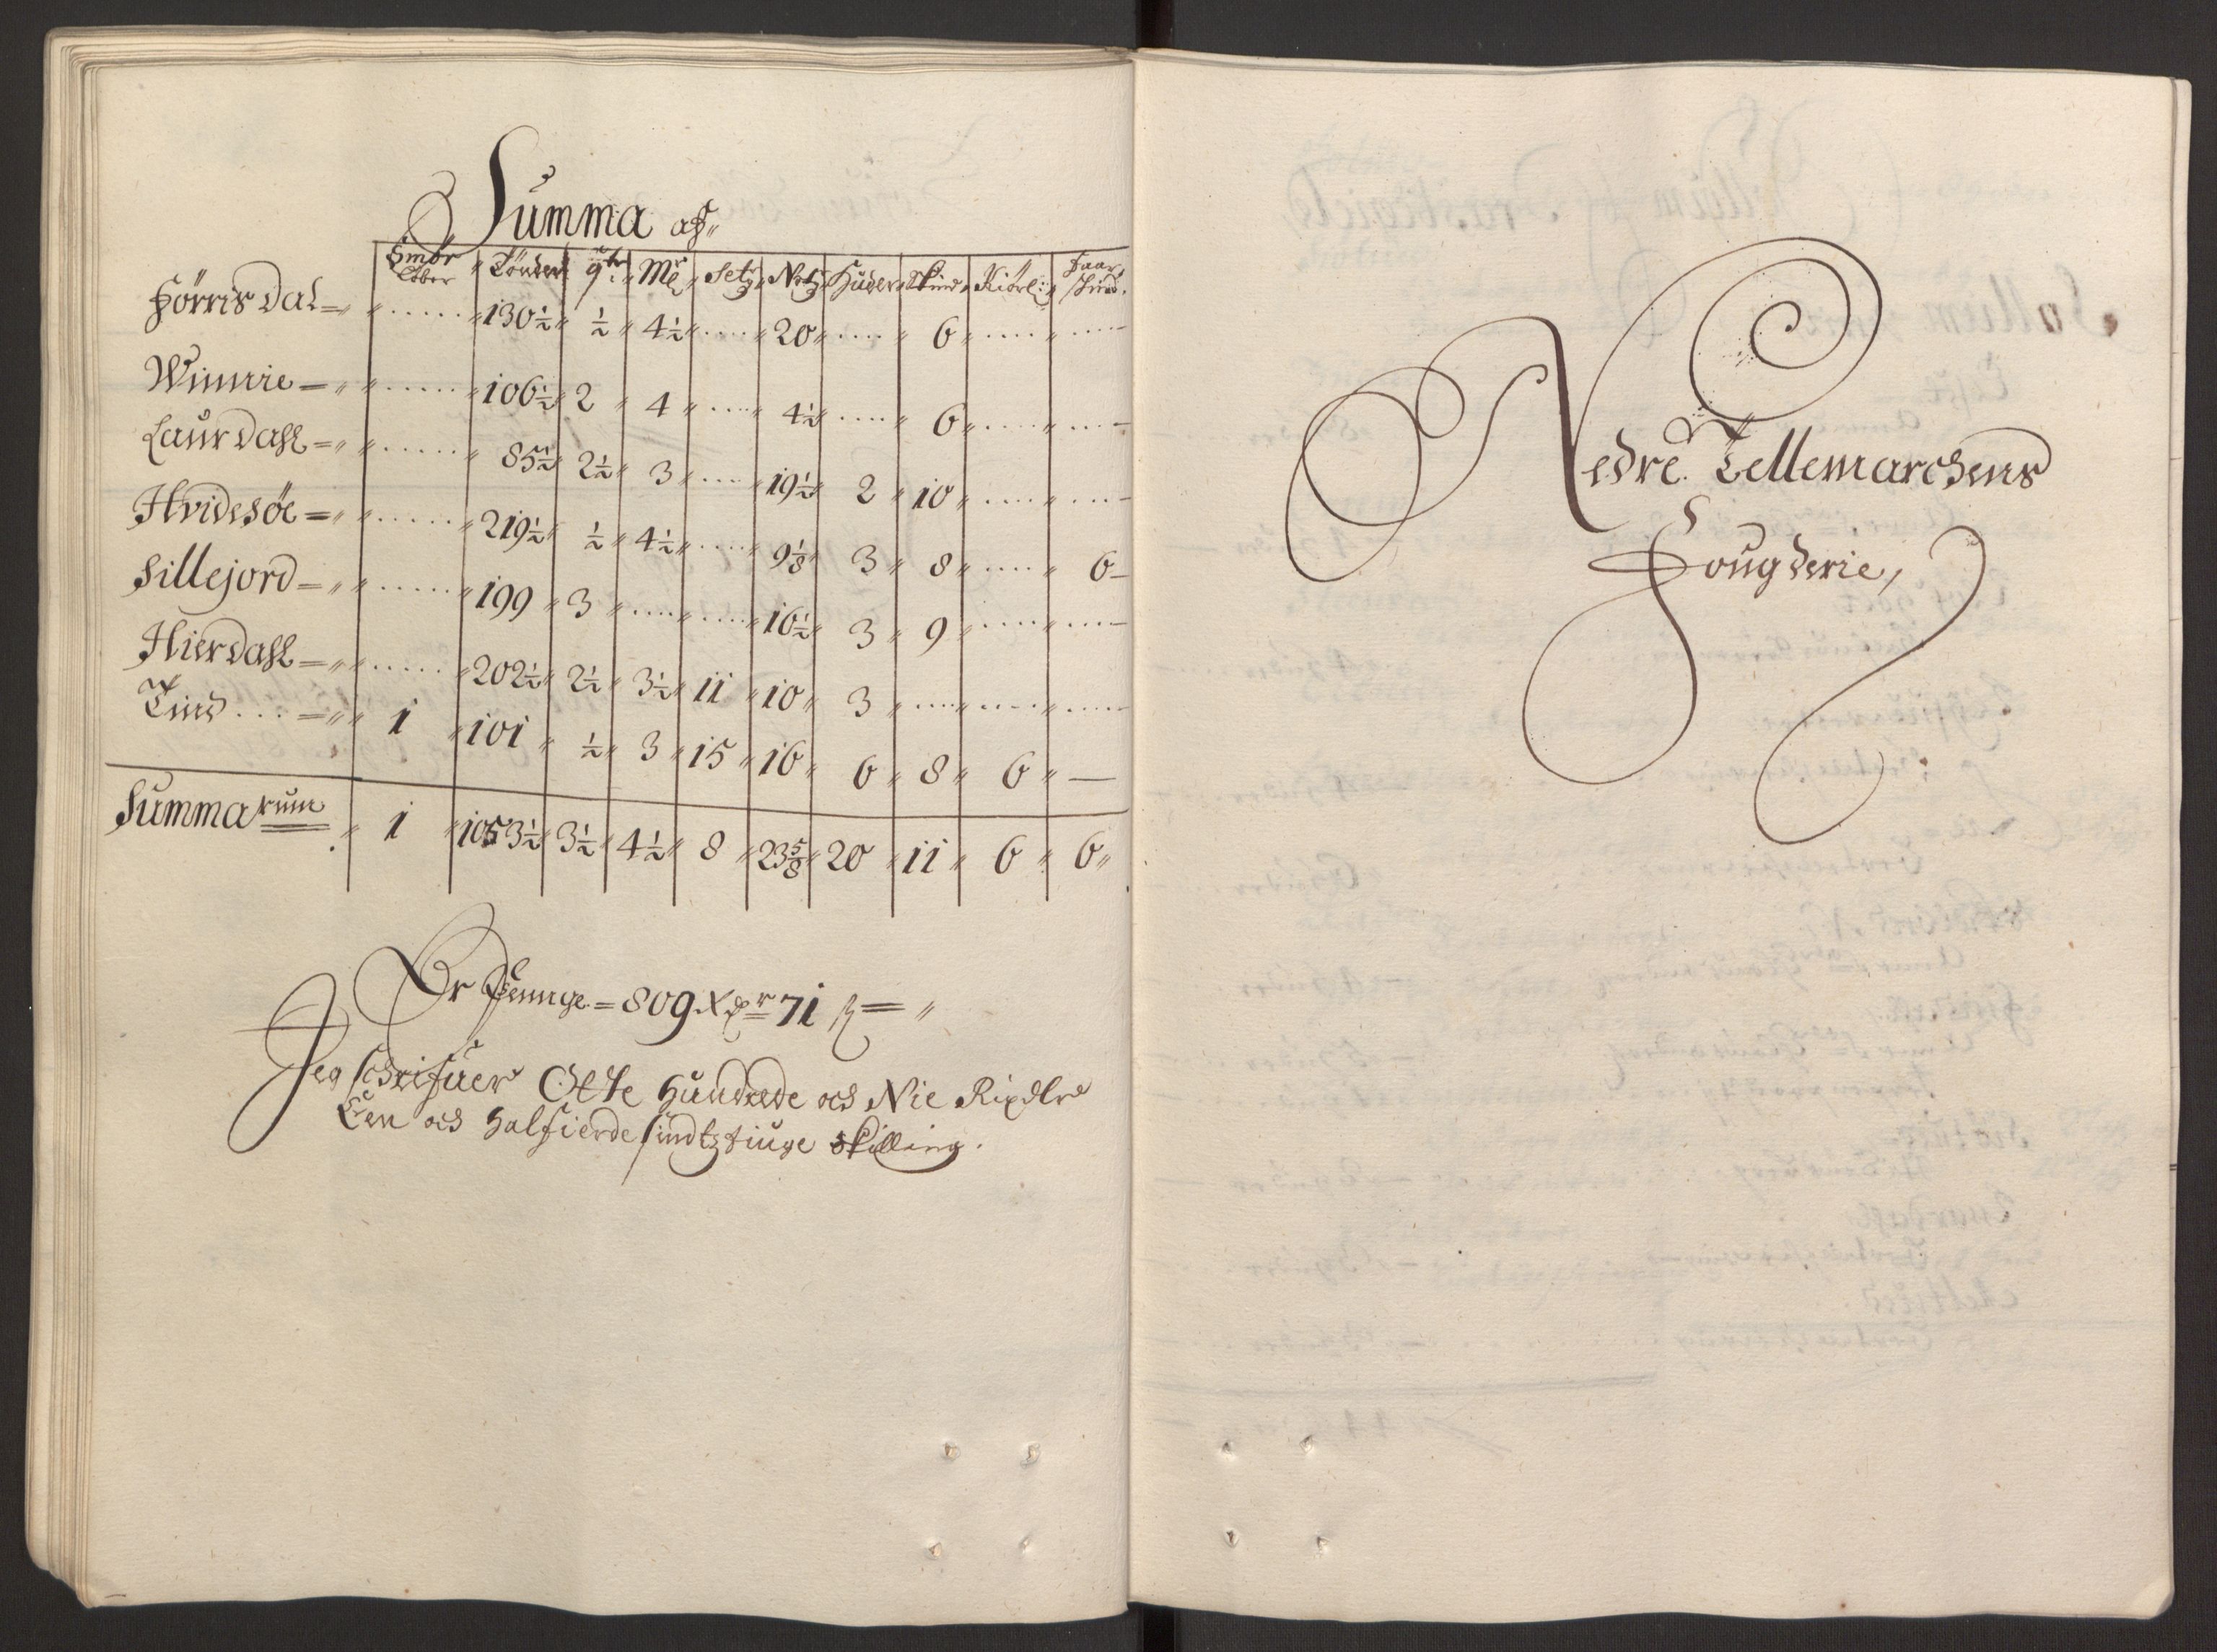 Summa af„
Smör Löber Tönder qtr Mrk Setz Netz Huder Skind Kiörl: Faar skind.
Hörris Dal = 130½ ½ 4½ ..... 20 ..... 6 ..... .....
Winnie = ..... 106½ 2 4 ..... 4½ ..... 6 ..... .....
Laurdahl = ..... 85½ 2½ 3 ..... 19½ 2 10 ..... .....
Hvidesøe = ..... 219½ ½ 4½ ..... 9⅛ 3 8 ..... 6
Sillejord = ..... 199 3 ..... ..... 16½ 3 9 ..... .....
Hierdahl = ..... 202½ 2½ 3½ 11 10 3 ..... ..... .....
Tind ... = 1 101 ½ 3 15 16 6 8 6 —
Summarum 1 1053½ 3½ 4½ 8 23⅝ 20 11 6 6
Er Penge = 809 Xdr 71 ß =
Jeg schrifuer Otte Hundrede och Nie Rixdlr
Een och halfierde sindtztiuge skilling.
Nedre Tellemarchens
Fougderie,